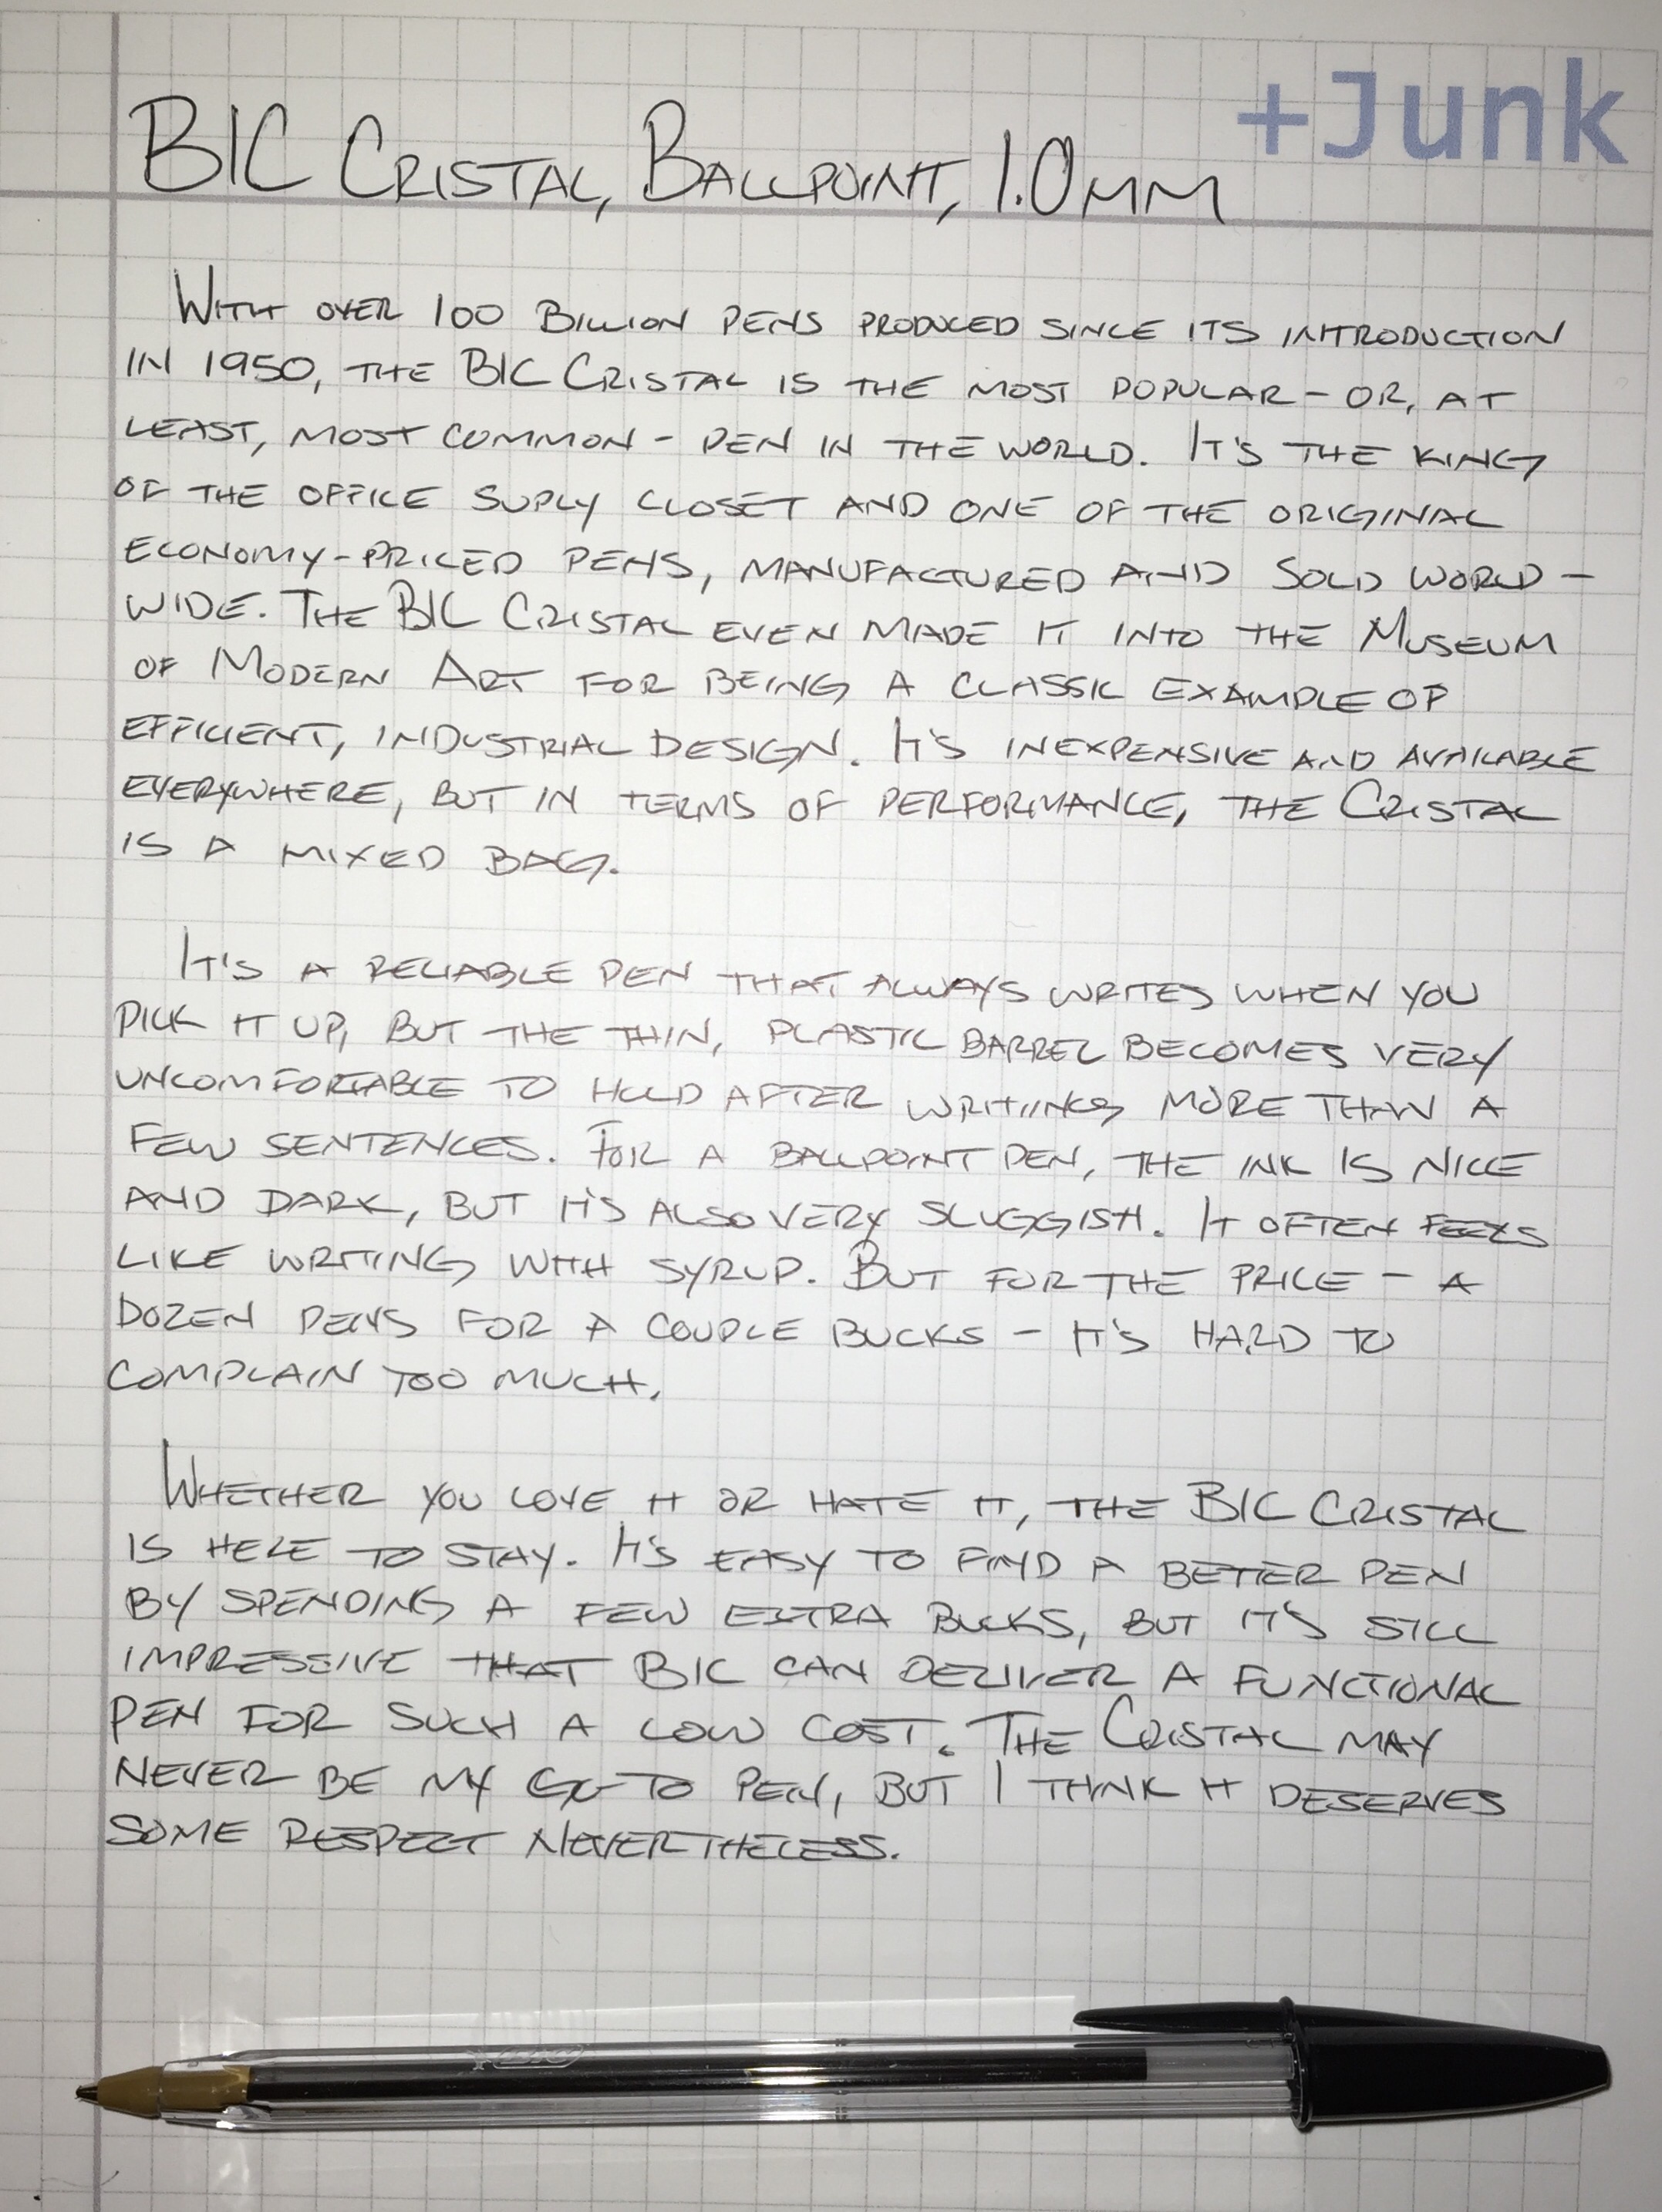 +Junk
BIC CRISTAL, BALLPOINT, 1.0MM
WITH OVER 100 BILLION PENS PRODUCED SINCE ITS INTRODUCTION
IN 1950, THE BIC CRISTAL IS THE MOST POPULAR - OR, AT
LEAST, MOST COMMON - PEN IN THE WORLD. IT'S THE KING
OF THE OFFICE SUPLY CLOSET AND ONE OF THE ORIGINAL
ECONOMY-PRICED PENS, MANUFACTURED AND SOLD WORLD-
WIDE. THE BIC CRISTAL EVEN MADE IT INTO THE MUSEUM
OF MODERN ART FOR BEING A CLASSIC EXAMPLE OF
EFFICIENT, INDUSTRIAL DESIGN. IT'S INEXPENSIVE AND AVAILABLE
EVERYWHERE, BUT IN TERMS OF PERFORMANCE, THE CRISTAL
IS A MIXED BAG.
IT'S A RELIABLE PEN THAT ALWAYS WRITES WHEN YOU
PICK IT UP, BUT THE THIN, PLASTIC BARREL BECOMES VERY
UNCOMFORTABLE TO HOLD AFTER WRITIING MORE THAN A
FEW SENTENCES. FOR A BALLPOINT PEN, THE INK IS NICE
AND DARK, BUT IT'S ALSO VERY SLUGGISH. IT OFTEN FEELS
LIKE WRITING WITH SYRUP. BUT FOR THE PRICE - A
DOZEN PENS FOR A COUPLE BUCKS - IT'S HARD TO
COMPLAIN TOO MUCH.
WHETHER YOU LOVE IT OR HATE IT, THE BIC CRISTAL
IS HERE TO STAY. IT'S EASY TO FIND A BETTER PEN
BY SPENDING A FEW EXTRA BUCKS, BUT IT'S STILL
IMPRESSIVE THAT BIC CAN DELIVER A FUNCTIONAL
PEN FOR SUCH A LOW COST. THE CRISTAL MAY
NEVER BE MY GO TO PEN, BUT I THINK IT DESERVES
SOME RESPECT NEVERTHELESS.
BIC